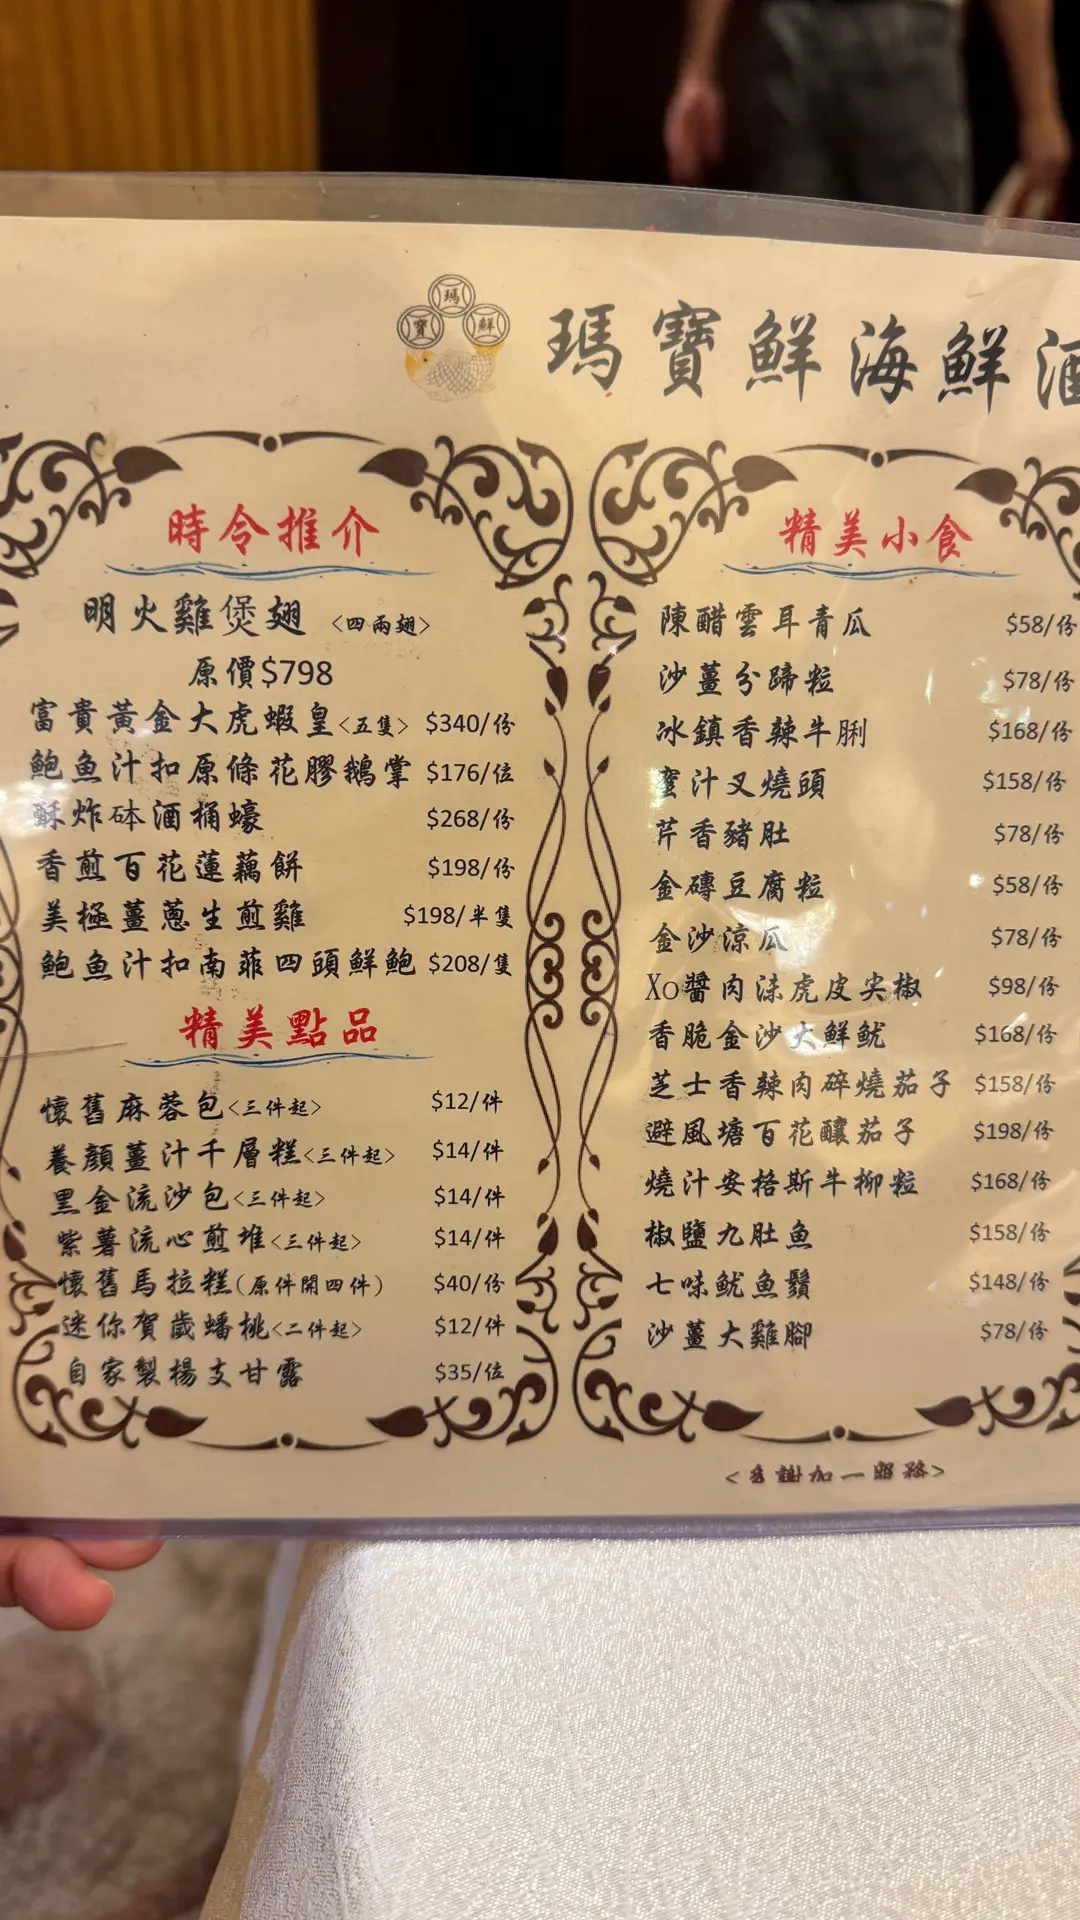 瑪
寶 鮮
瑪寶鮮海鮮酒
時令推介
明火雞煲翅 <四兩翅>
原價$798
富貴黃金大虎蝦皇<五隻> $340/份
鮑魚汁扣原條花膠鵝掌 $176/位
酥炸砵酒桶蠔 $268/份
香煎百花蓮藕餅 $198/份
美極薑蔥生煎雞 $198/半隻
鮑魚汁扣南菲四頭鮮鮑 $208/隻
精美點品
懷舊麻蓉包<三件起> $12/件
養顏薑汁千層糕<三件起> $14/件
黑金流沙包<三件起> $14/件
紫薯流心煎堆<三件起> $14/件
懷舊馬拉糕(原件開四件) $40/份
迷你賀歲蟠桃<二件起> $12/件
自家製楊支甘露 $35/位
精美小食
陳醋雲耳青瓜 $58/份
沙薑分蹄粒 $78/份
冰鎮香辣牛脷 $168/份
蜜汁叉燒頭 $158/份
芹香豬肚 $78/份
金磚豆腐粒 $58/份
金沙涼瓜 $78/份
Xo醬肉洡虎皮尖椒 $98/份
香脆金沙大鮮魷 $168/份
芝士香辣肉碎燒茄子 $158/份
避風塘百花釀茄子 $198/份
燒汁安格斯牛柳粒 $168/份
椒鹽九肚魚 $158/份
七味魷魚鬚 $148/份
沙薑大雞腳 $78/份
<多謝加一服務>